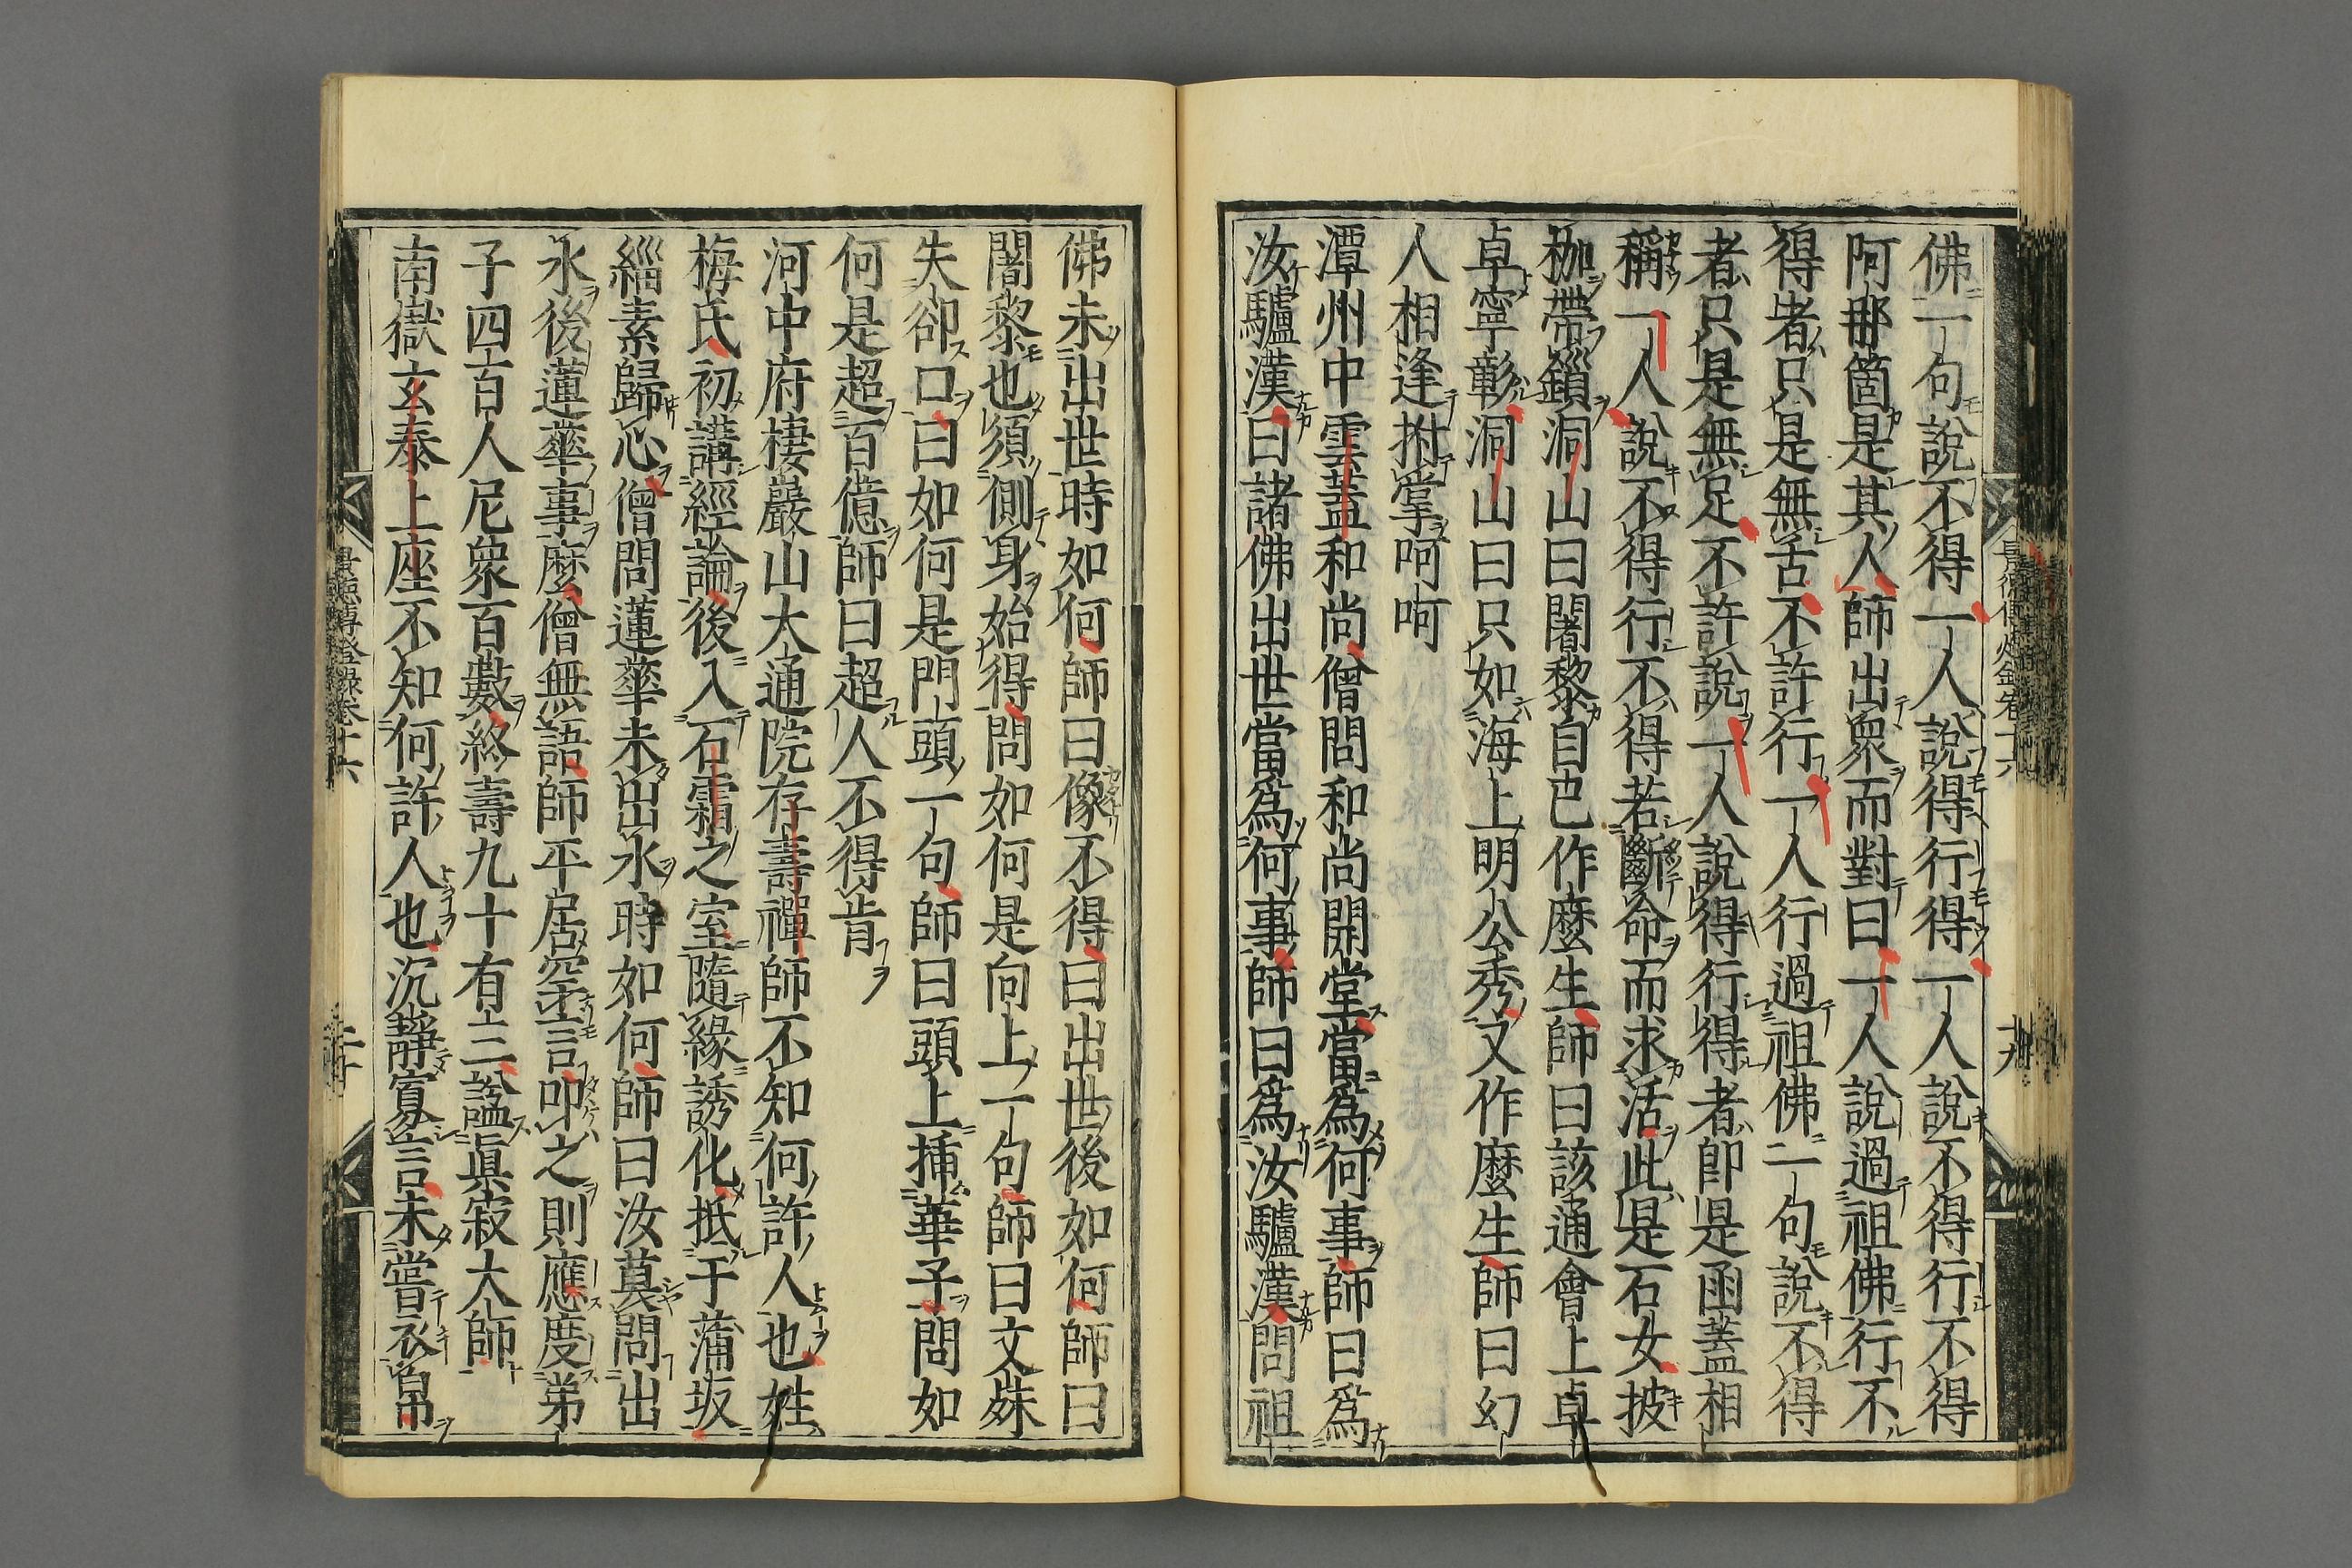 佛一句說不得一人說得行得一人說不得行不得
阿那箇是其人師出衆而對曰一人說過祖佛行不
得者只是無舌不許行一人行過祖佛一句說不得
者只是無足不許說一人說得行得者即是函蓋相
稱一人說不得行不得若斷命而求活此是石女披
枷帶鎻洞山曰闍黎自己作麼生師曰該通會上卓
卓寧彰洞山曰只如海上明公秀又作麼生師曰幻
人相逢拊掌呵呵
潭州中雲蓋和尚僧問和尚開堂當爲何事師曰爲
汝驢漢曰諸佛出世當爲何事師曰爲汝驢漢問祖
佛未出世時如何師曰像不得曰出世後如何師曰
闍黎也須側身始得問如何是向上一句師曰文殊
失卻口曰如何是門頭一句師曰頭上揷華子問如
何是超百億師曰超人不得肯
河中府棲巖山大通院存壽禪師不知何許人也姓
梅氏初講經論後入石霜之室隨緣誘化抵于蒲坂
緇素歸心僧問蓮華未出水時如何師曰汝莫問出
水後蓮華事麼僧無語師平居罕言叩之則應度弟
子四百人尼衆百數終壽九十有三諡眞寂大師
南嶽玄泰上座不知何許人也沉靜寡言未嘗衣帛
景德傳燈錄卷十六